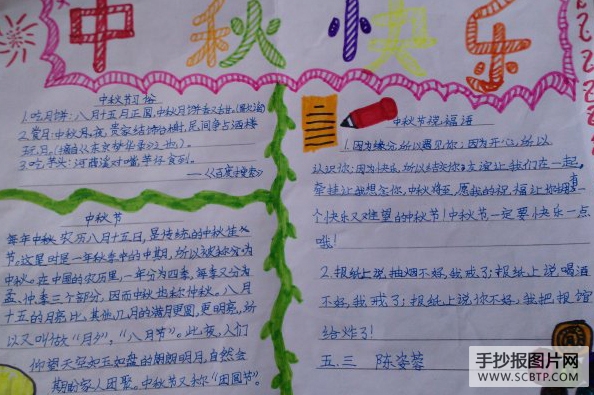 中秋快乐
中秋节习俗
1.吃月饼:八月十五月正圆,中秋月饼
2.赏月:中秋月夜,贵家结饰台榭,民间争占酒楼
玩月。
3.吃芋头:河荫溪对嘴芋仔食到。
——《百度搜索》
中秋节
每年中秋农历八月十五日,是传统的中秋佳
节。这里时是一年秋季中的中期,所以被称分为
中秋。在中国的农历里,一年分为四季,每季又分为
孟、仲、季三个部分,因而中秋也称仲秋。八月
十五的月亮比其他几月的满月更圆,更明亮,所
以又叫做“月夕”,“八月节”。此夜,人们
仰望天空如玉如盘的朗朗明月,自然会
期盼家人团聚。中秋节又称“团圆节”。
中秋节祝福语
1.因为缘分,所以遇见你;因为开心,所以
认识你;因为快乐,所以结交你;友谊让我们在一起,
牵挂让我想念你,中秋将至,愿我的祝福让你拥有
一个快乐又难忘的中秋节!中秋节一定要快乐一点
哦!
2.报纸上说,抽烟不好,我戒了;报纸上说,喝酒
不好,我戒了;报纸上说你不好,我把报馆
给炸了!
五.三 陈姿蓉
手抄报图片网
WWW.SCBTP.COM